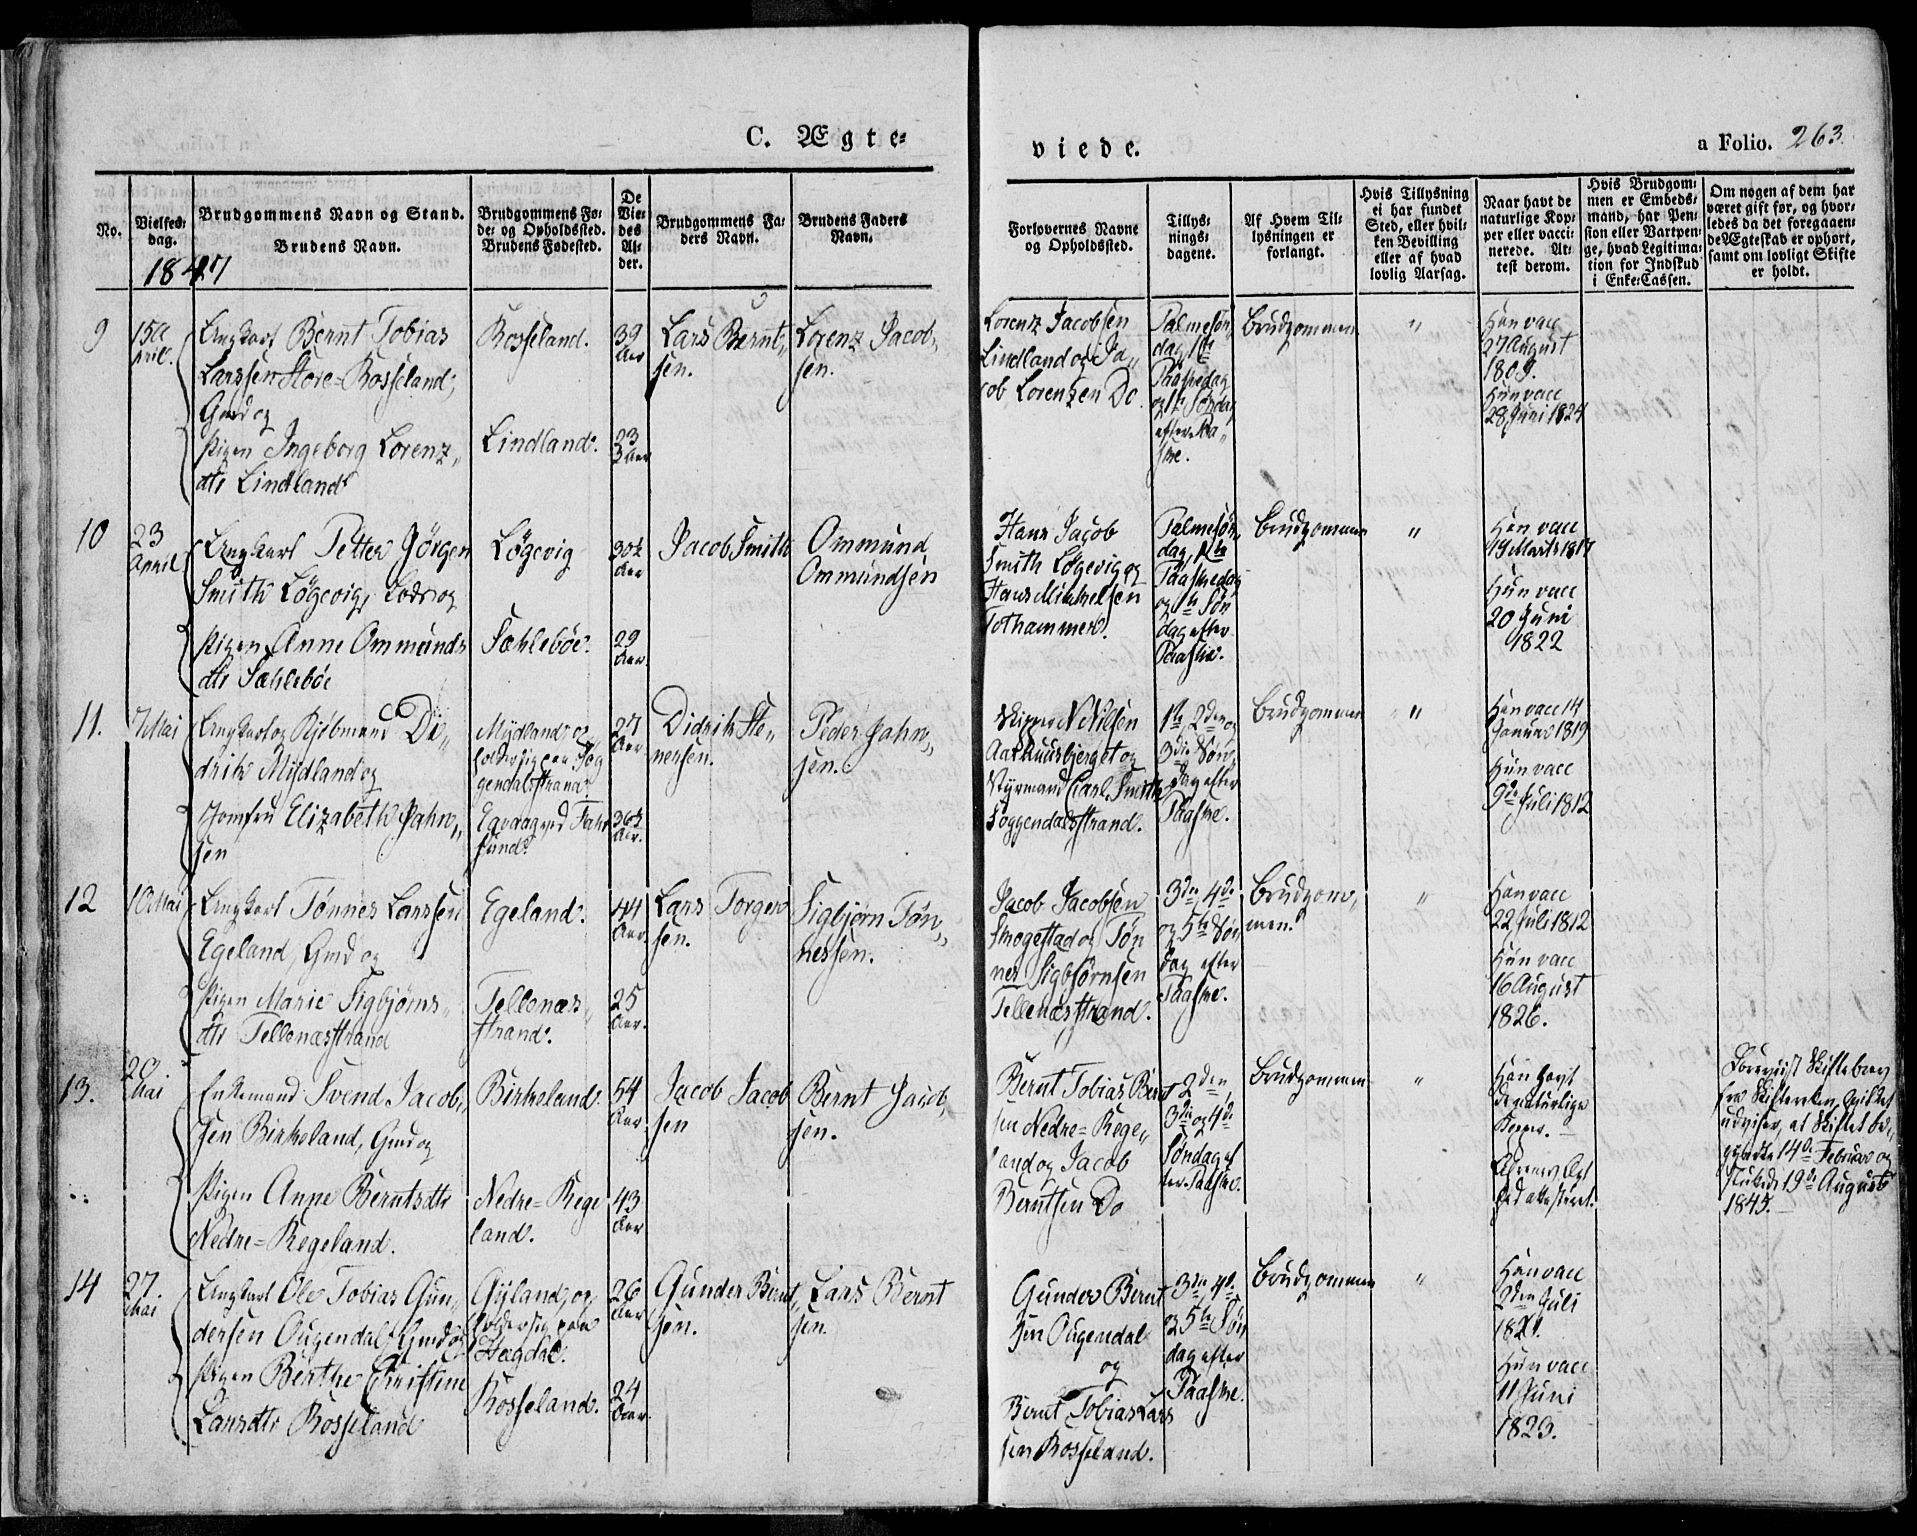 C. Ægte-
viede.
a Folio. 263.
No.
Vielses-
dag.
1847
Brudgommens Navn og Stand.
Brudens Navn.
Brudgommens Fø-
de- og Opholdssted.
Brudens Fødested.
De
Vie-
des
Al-
der.
Brudgommens Fa-
ders Navn.
Brudens Faders
Navn.
Forlovernes Navne
og Opholdssted.
Tillys-
nings-
dagene.
Af Hvem Til-
lysningen er
forlangt.
Hvis Tillysning
ei har fundet
Sted, eller hvil-
ken Bevilling
eller af hvad
lovlig Aarsag.
Naar havt de
naturlige Kop-
per eller vacci-
nerede. At-
test derom.
Hvis Brudgom-
men er Embeds-
mand, har Pen-
sion eller Vartpen-
ge, hvad Legitima-
tion for Indskud
i Enke-Cassen.
Om nogen af dem har
været gift før, og hvor-
ledes da det foregaaen-
de Ægteskab er ophørt,
samt om lovligt Skifte
er holdt.
9
15 A
pril.
Ungkarl Bernt Tobias
Larssen Store-Rosseland,
Gmd og
Pigen Ingeborg Lorenz-
dtr Lindland
Rosseland.
Lindland.
39
Aar
23
Aar
Lars Bernt-
sen.
Lorenz Jacob-
sen.
Lorenz Jacobsen
Lindland og Ja-
cob Lorenzen Do
Palmesøn-
dag, 1ste
Paaskedag
og 1ste Søndag
efter Paa-
ske.
Brudgommen
"
Han vacc
27 August
1809.
Hun vacc
28 Juni 1824
10
23
April
Ungkarl Petter Jörgen
Smith Løgevig, Lods og
Pigen Anne Ommunds
dtr Sæhlebøe
Løgevig
Sæhlebøe.
30½
Aar
29
Aar.
Jacob Smith
Ommund
Ommundsen
Hans Jacob
Smith Løgevig og
Hans Mikkelsen
Tothammer.
Palmesøn-
dag, 1ste
Paaskedag
og 1ste Søn
dag efter
Paaske.
Brudgommen
"
Han vacc
19 Marts 1817
Hun vacc
20 Juni
1822
11.
7 Mai
Ungkarl og Kjøbmand Di-
drik Mydland og
Jomfru Elizabeth Jahn-
sen
Mydland og
holder sig paa Sog
gendalsstrand.
Eavaag ved Fahr
sund.
27
Aar
36½
Aar.
Didrik Ste-
nersen.
Peder Jahn-
sen.
Skipper N Nilsen
Aarhuusbjerget og
Styrmand Carl Smith
Soggendalsstrand.
1ste 2den og
3die Søn-
dag efter
Paaske.
Brudgommen
"
Han vacc 14
Januar 1819
Hun vacc
9de Juli 1812
12
10 Mai
Ungkarl Tönnes Larssen
Egeland, Gmd og
Pigen Marie Sigbjørns-
dtr Tellenæsstrand
Egeland.
Tellenæs-
strand.
44
Aar.
25
Aar.
Lars Torger
sen.
Sigbjørn Tøn-
nessen.
Jacob Jacobsen
Skogestad og Tøn
nes Sigbjørnsen
Tellenæsstrand.
3die 4de
og 5te Søn
dag efter
Paaske.
Brudgom-
men.
"
Han vacc
22 Juli 1812
Hun vacc
16 August
1826.
13.
20
Mai
Enkemand Svend Jacob-
sen Birkeland, Gmd og
Pigen Anne Berntsdtr
Nedre-Regeland.
Birkeland.
Nedre-Rege
land.
54
Aar.
43
Aar
Jacob Jacob
sen
Bernt Jacob-
sen.
Bernt Tobias Bernt
sen Nedre-Rege-
land og Jacob
Berntsen Do
2den,
3die og 4de
Søndag ef
ter Paaske.
Brudgommen
"
Han havt
de naturlige
Kopper.
Forevist Skiftebrev
fra Skifteretten, hvilket
udviser, at Skiftet be-
gyndte 14de Februar og
sluttedes 19de August
1845.
14
27
Mai
Ungkarl Ole Tobias Gun-
dersen Ougendal, Gmd og
Pigen Berthe Christine
Larsdtr Rosseland
Gyland, og
holder sig paa
Hægdal.
Rosseland.
26
Aar
24
Aar.
Gunder Bernt-
sen.
Lars Bernt
sen.
Gunder Bernt
sen Ougendal
og
Bernt Tobias Lars
sen Rosseland.
3die, 4de
og 5te Søn
dag efter
Paaske.
Brudgommen
"
Han vacc
2den Juli
1821.
Hun vacc
11 Juni
1823.